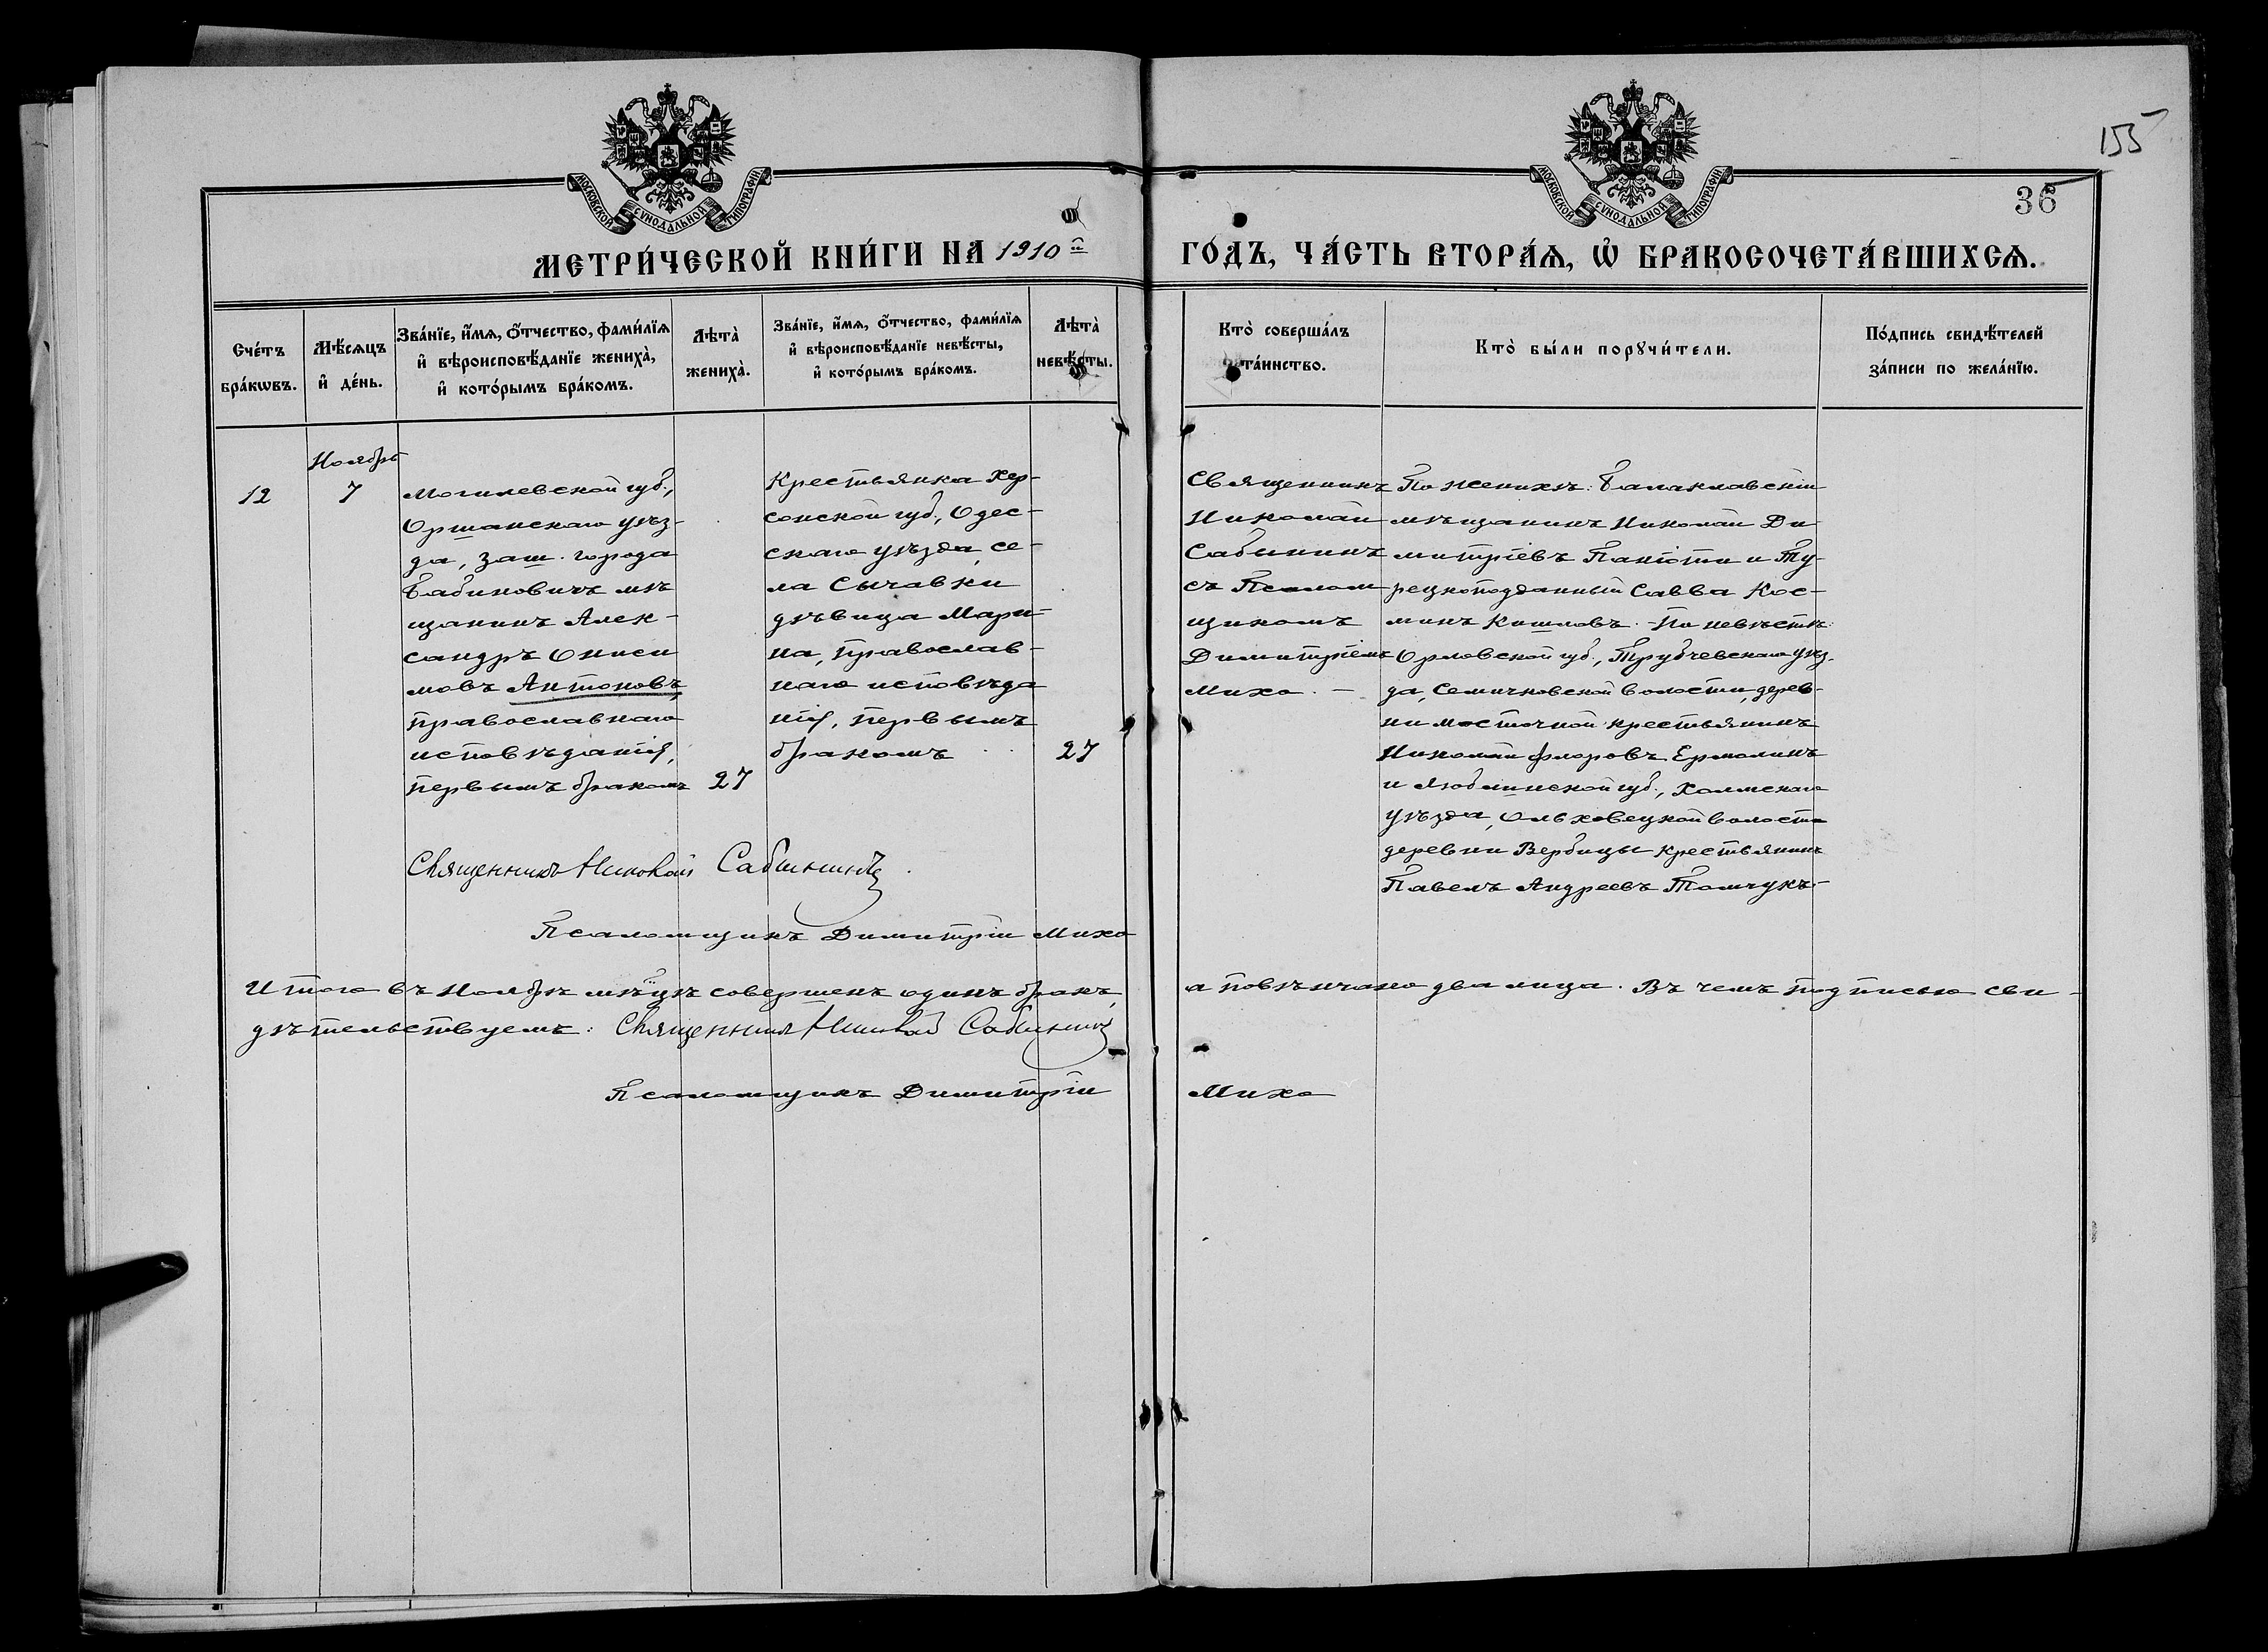 155
36
МОСКОВСКОЙ СѴНОДАЛЬНОЙ ТИПОГРАФІИ
МОСКОВСКОЙ СѴНОДАЛЬНОЙ ТИПОГРАФІИ
МЕТРИ́ЧЕСКОЙ КНИ́ГИ НА 1910й
ГО́ДЪ, ЧА́СТЬ ВТОРА́Ѧ, Ѽ БРАКОСОЧЕТА́ВШИХСѦ.
Сче́тъ
бра́кѡвъ.
Мѣ́сѧцъ
и҆ де́нь.
Зва́нїе, и҆́мѧ, ѻ҆́тчество, фами́лїѧ
и҆ вѣроисповѣ́данїе жениха̀,
и҆ кото́рымъ бра́комъ.
Лѣ́та̀
жениха̀.
Зва́нїе, и҆́мѧ, ѻ҆́тчество, фами́лїѧ
и҆ вѣроисповѣ́данїе невѣ́сты,
и҆ кото́рымъ бра́комъ.
Лѣ́та̀
невѣ́сты.
Кто̀ соверша́лъ
та́инство.
Кто̀ бы́ли порꙋчи́тели.
По́дпись свидѣ́телей
за́писи по жела́нїю.
12
Ноябрь
7
Могилевской губ.,
Оршанскаго уѣз-
да, заш. города
Бабиновичъ мѣ
щанинъ Алек-
сандръ Ониси
мовъ Антоновъ,
православнаго
исповѣданія,
первымъ бракомъ
27
Крестьянка Хер-
сонской губ., Одес-
скаго уѣзда, се-
ла Сычавки
дѣвица Мари-
на, православ-
наго исповѣда
нія, первымъ
бракомъ
27
Священникъ
Николай
Сабининъ
съ Псалом
щикомъ
Димитріемъ
Михо. —
По женихѣ: Балаклавскій
мѣщанинъ Николай Ди-
митріевъ Паніоти и Ту-
рецкоподданный Савва Кос-
минъ Кишловъ. - По невѣстѣ:
Орловской губ., Трубчевскаго уѣз-
да, Семячковской волости, дерев-
ни мосточной крестьянинъ
Николай Флоровъ Ермолинъ
и Люблинской губ., Холмскаго
уѣзда, Ольховецкой волости
деревни Вербицы крестьянинъ
Павелъ Андреевъ Томчукъ -
Священникъ Николай Сабининъ.
Псаломщикъ Димитрій Михо
Итого въ Ноябрѣ мѣцѣ совершенъ одинъ бракъ,
а повѣнчано два лица. Въ чемъ подписью сви-
дѣтельствуемъ: Священникъ Николай Сабининъ
Псаломщикъ Димитрій
Михо